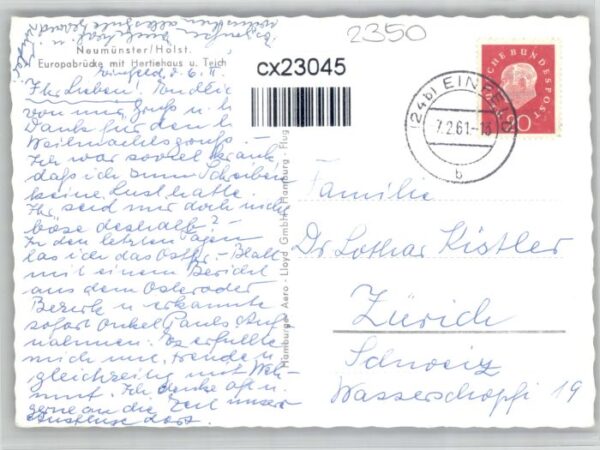 2350
Neumünster/Holst.
Europabrücke mit Hertiehaus u. Teich
cx23045
Einfeld d. 6. II.
Ihr Lieben! Endlich
von mir Gruß u. h
Dank für den l
Weihnachtsgruß. -
Ich war soviel krank
daß ich zum Schreiben
keine Lust hatte.
Ihr seid mir doch nicht
böse deshalb? -
In den letzten Tagen
las ich das Ostpr.-Blatt
mit einem Bericht
aus dem Osteroder
Bezirk u. erkannte
sofort Onkel Pauls Auf-
nahmen. Es erfüllte
mich mit Freude u.
gleichzeitig mit Weh-
mut. Ich denke oft u.
gerne an die Zeit unserer
Ausflüge dort.
Hamburger Aero-Lloyd GmbH. Hamburg-Flug
(24b) EINFELD
7.2.61.-18
b
SCHE BUNDESPOST
20
Familie
Dr Lothar Kistler
Zürich
Schweiz
Wasserschöpfi 19